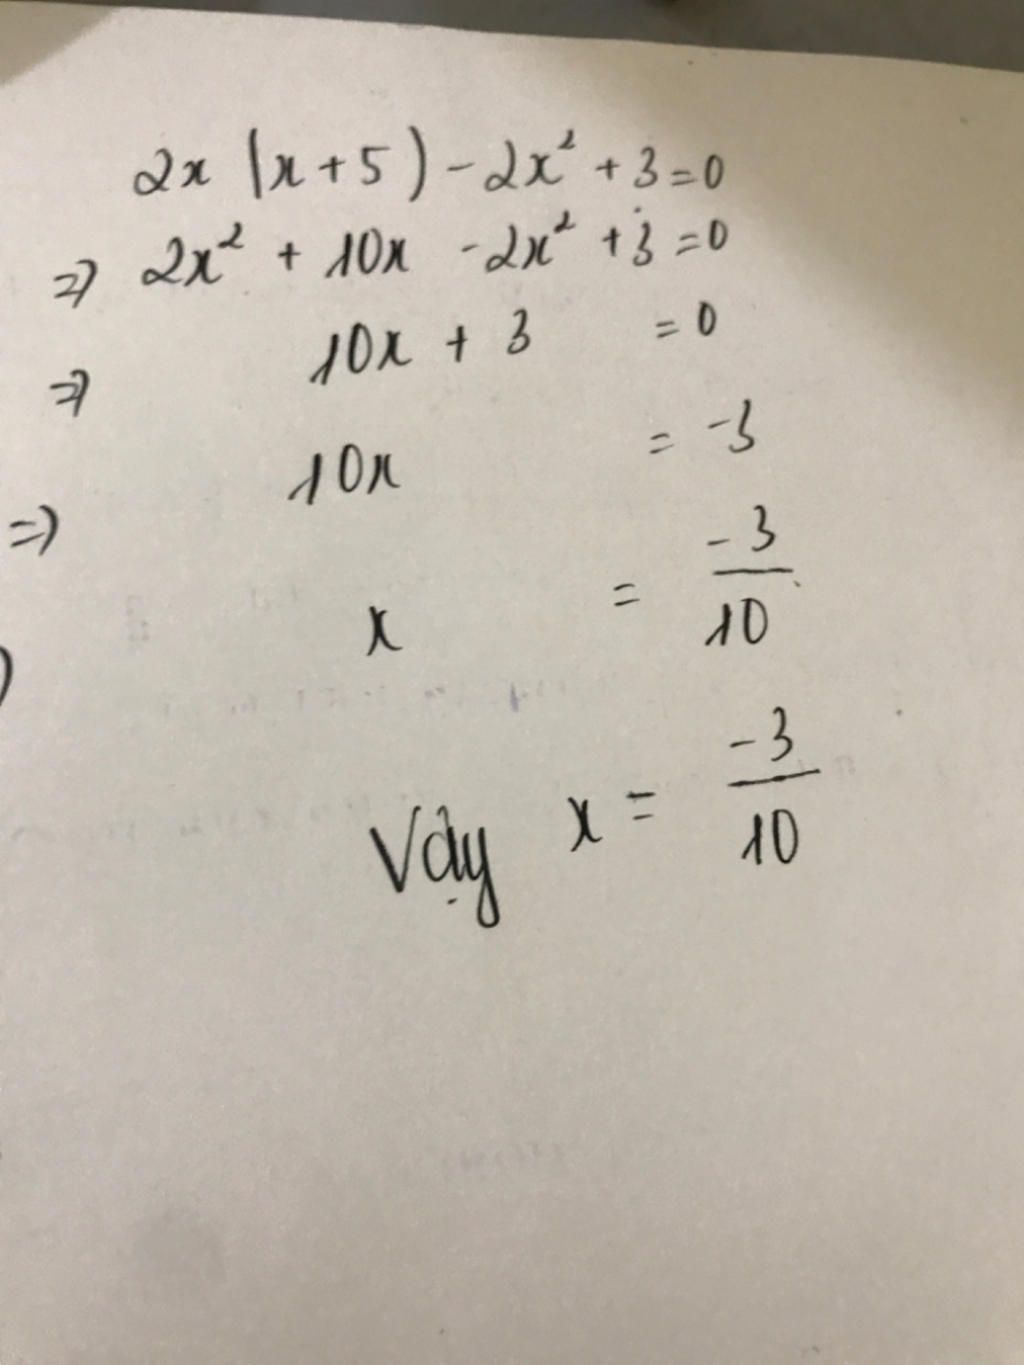 2x (x+5) - 2x² + 3 = 0
=> 2x² + 10x - 2x² + 3 = 0
=> 10x + 3 = 0
10x = -3
=> x = -3/10
Vậy x = -3/10